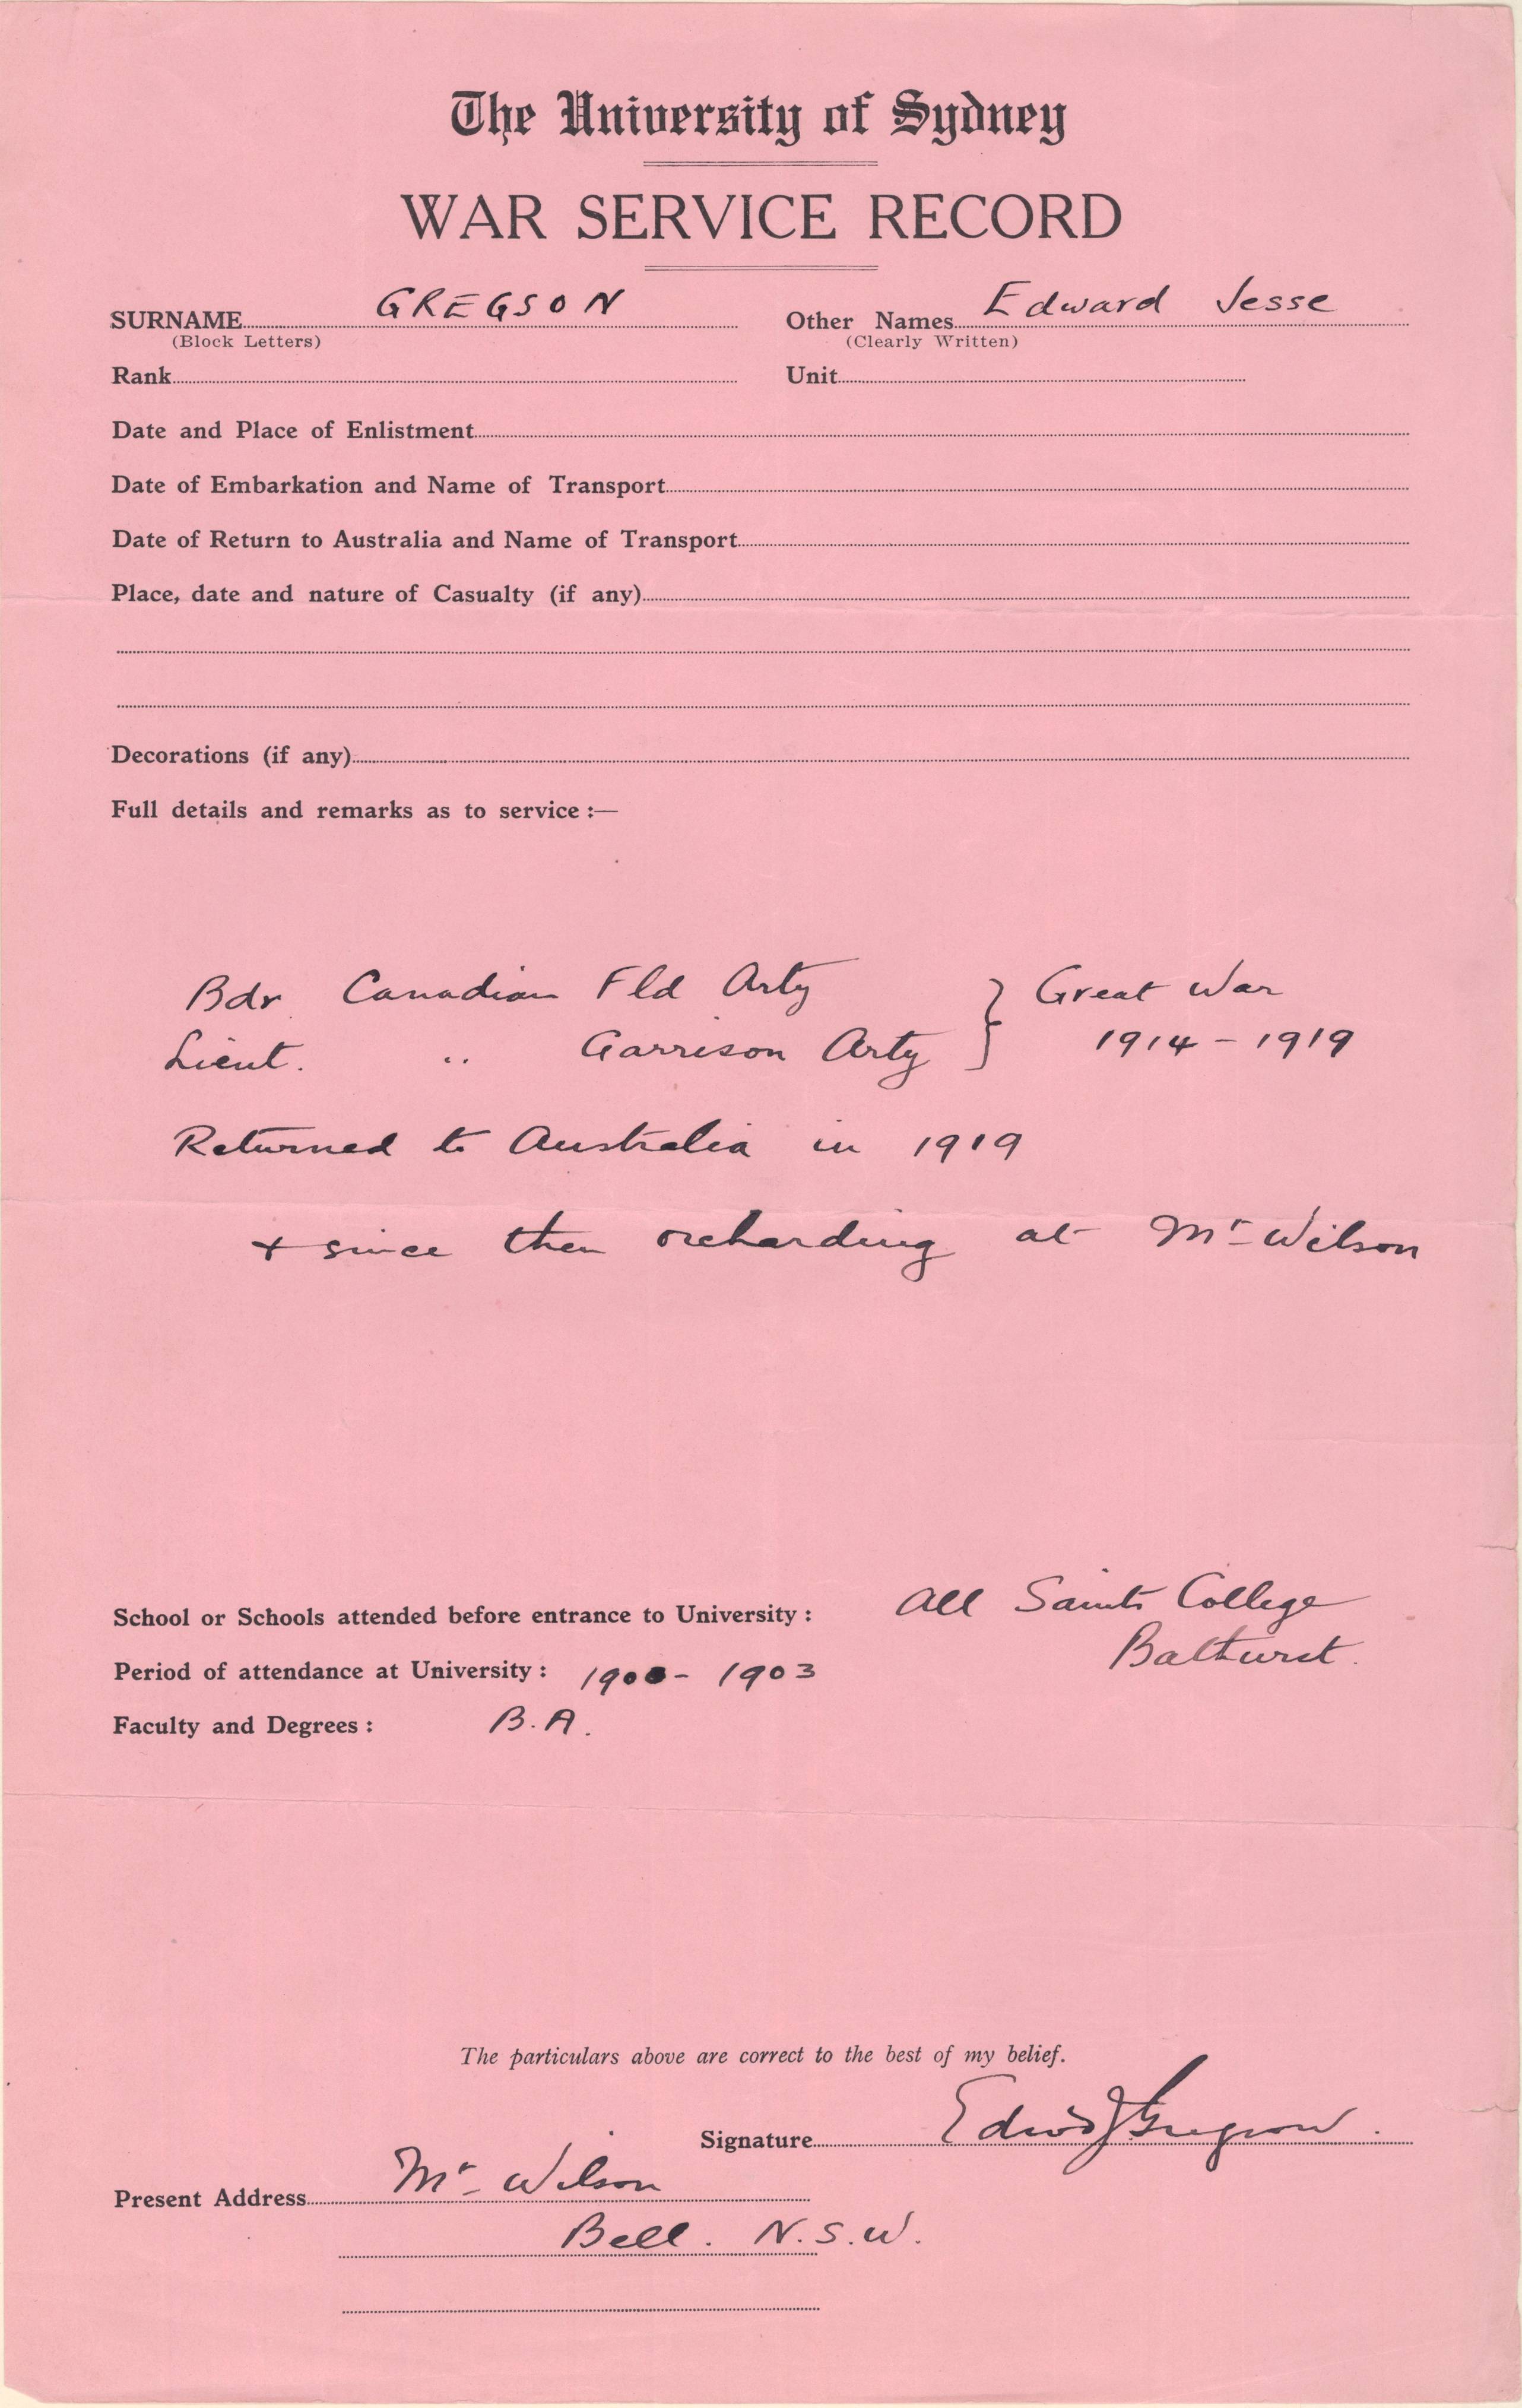 The University of Sydney
WAR SERVICE RECORD
SURNAME GREGSON Other Names Edward Jesse
(Block Letters) (Clearly Written)
Rank Unit
Date and Place of Enlistment
Date of Embarkation and Name of Transport
Date of Return to Australia and Name of Transport
Place, date and nature of Casualty (if any)
Decorations (if any)
Full details and remarks as to service :—
Bdr Canadian Fld Arty } Great War
Lieut. " Garrison Arty } 1914 - 1919
Returned to Australia in 1919
+ since then orcharding at Mt Wilson
School or Schools attended before entrance to University : All Saints College
Bathurst.
Period of attendance at University : 1900 - 1903
Faculty and Degrees : B.A.
The particulars above are correct to the best of my belief.
Signature Edwd J Gregson.
Present Address Mt Wilson
Bell. N.S.W.